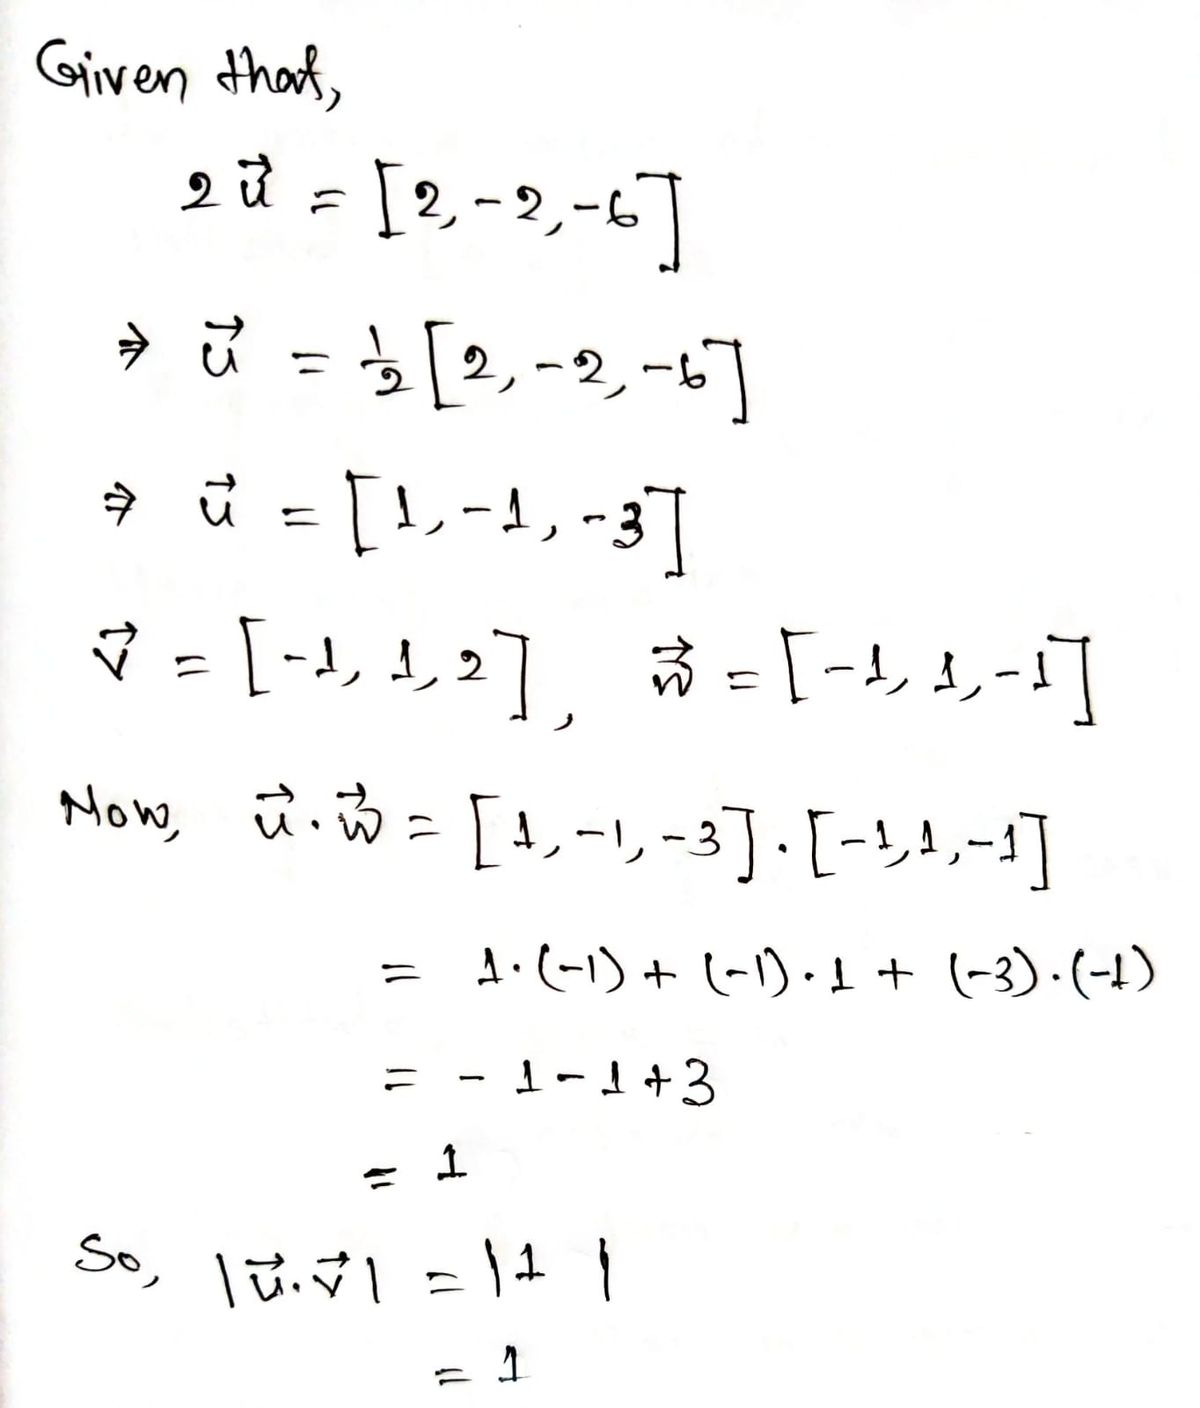 Given that,
2 u⃗ = [2, -2, -6]
⇒ u⃗ = 1/2 [2, -2, -6]
⇒ u⃗ = [1, -1, -3]
v⃗ = [-1, 1, 2], w⃗ = [-1, 1, -1]
Now, u⃗ . w⃗ = [1, -1, -3] . [-1, 1, -1]
= 1 . (-1) + (-1) . 1 + (-3) . (-1)
= - 1 - 1 + 3
= 1
So, |u⃗ . v⃗| = |1|
= 1